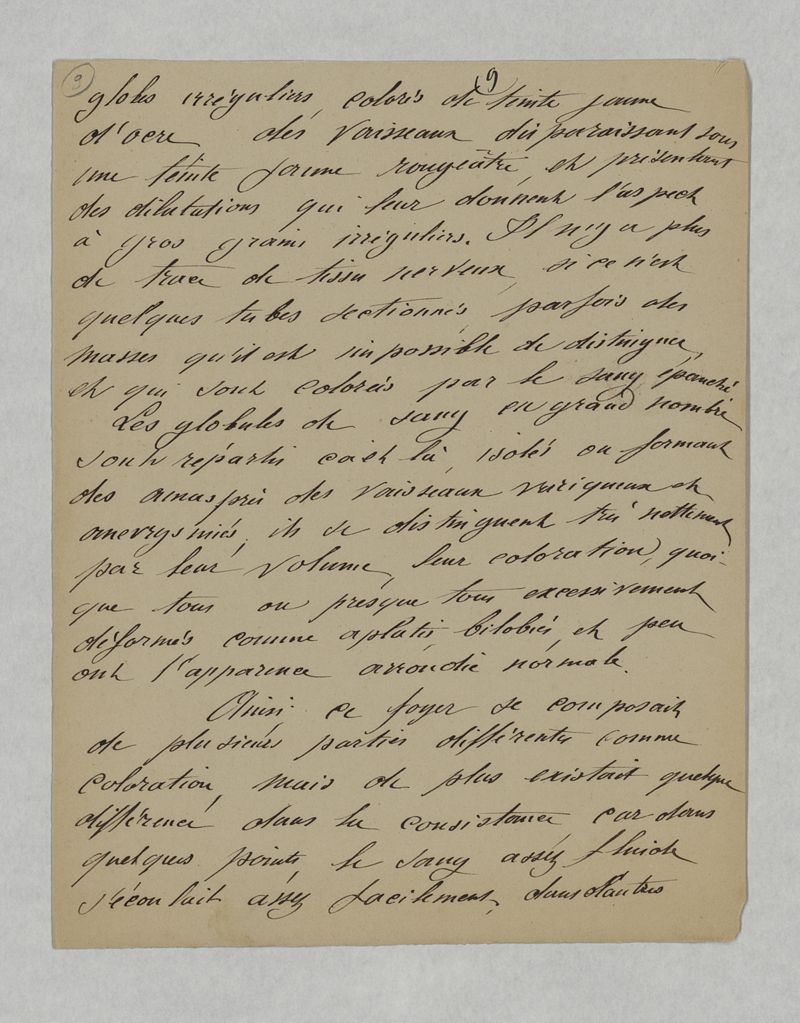 9
9
globes irréguliers, colorés de teinte jaune
d'ocre des vaisseaux disparaissant sous
une teinte jaune rougeâtre, et présentant
des dilatations qui leur donnent l'aspect
à gros grains irréguliers. Il n'y a plus
de trace de tissu nerveux, si ce n'est
quelques tubes sectionnés, parfois des
masses qu'il est impossible de distinguer,
et qui sont colorés par le sang épanché
Les globules de sang en grand nombre
sont répartis ça et là, isolés ou formant
des amas près des vaisseaux variqueux et
anevrysmiés, ils se distinguent très nettement
par leur volume, leur coloration, quoi-
que tous ou presque tous excessivement
déformés comme aplatis, bilobés, et peu
ont l'apparence arrondie normale.
Ainsi ce foyer se composait
de plusieurs parties différentes comme
coloration, mais de plus existait quelque
différence dans la consistance, car dans
quelques points le sang assez fluide
s'écoulait assez facilement, dans d'autres